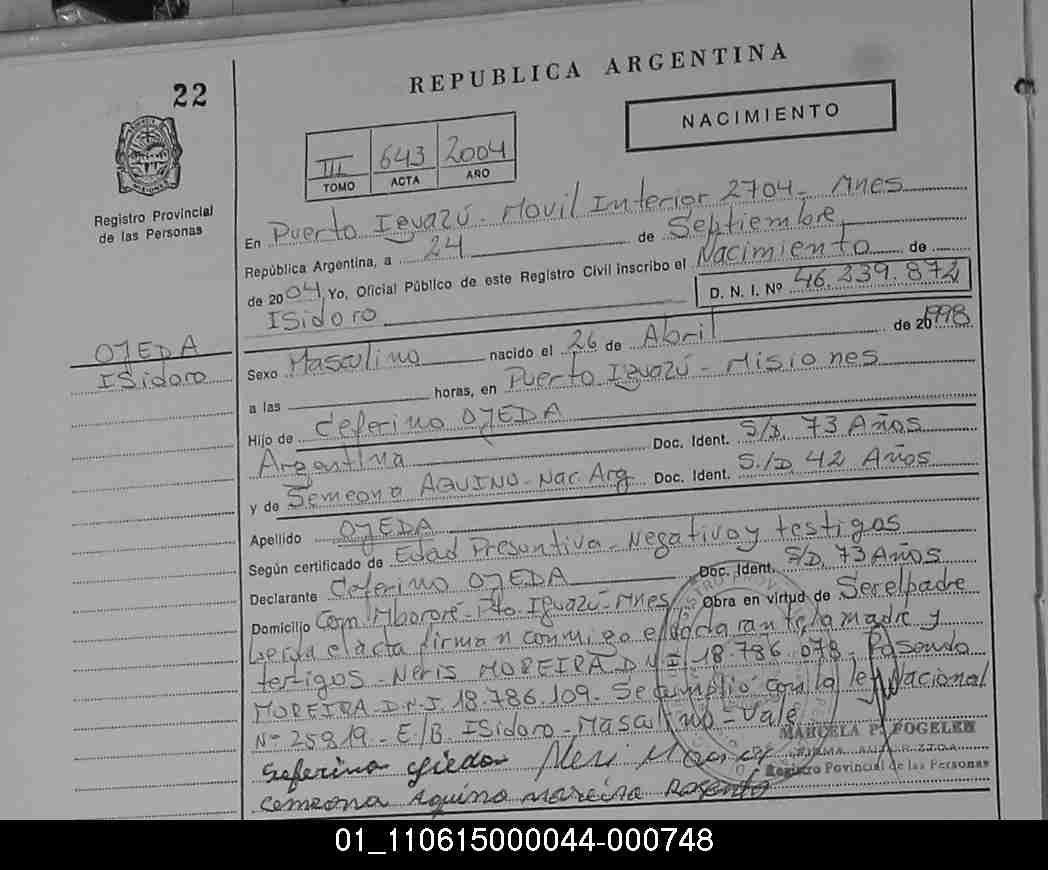 22
REPUBLICA ARGENTINA
NACIMIENTO
III 643 2004
TOMO ACTA AÑO
Registro Provincial
de las Personas
En Puerto Iguazú - Movil Interior 2704 - Mnes
República Argentina, a 24 de Septiembre
de 2004, Yo, Oficial Público de este Registro Civil inscribo el Nacimiento de
ISidoro D. N. I. Nº 46.239.872
OJEDA
ISidoro
Sexo Masculino nacido el 26 de Abril de 20 1998
a las horas, en Puerto Iguazú - Misiones
Hijo de Ceferino OJEDA
Argentina Doc. Ident. S/D, 73 Años
y de Semeona AQUINO - Nac. Arg Doc. Ident. S/D, 42 Años
Apellido OJEDA
Según certificado de Edad Presuntiva - Negativo y testigos
Declarante Ceferino OJEDA Doc. Ident. S/D, 73 Años
Domicilio Com Mbororé - Pto. Iguazú - Mnes Obra en virtud de Ser el padre
el acta firman conmigo el declarante, la madre y
testigos - Neris MOREIRA D.N.I 18.786.078 - Rosendo
MOREIRA D.N.I. 18.786.109 - Se cumplió con la ley Nacional
Nº 25819 - E/B. ISidoro - Masculino = Vale
MARCELA P. FOGELER
Registro Povincial de las Personas
Seferino Ojeda
Semeona Aquino Moreira Rosendo
01_110615000044-000748